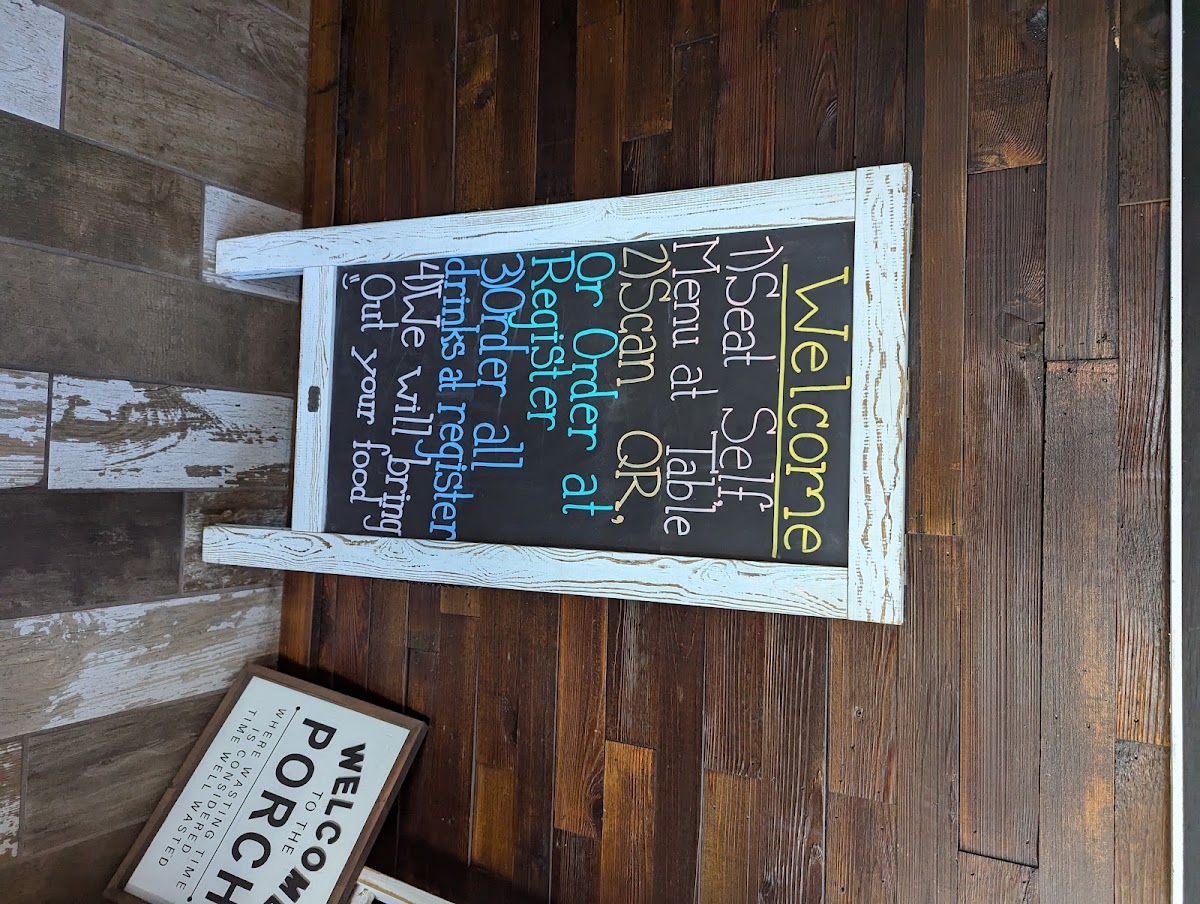 Welcome
1)Seat Self
Menu at Table
2)Scan QR,
Or Order at
Register
3)Order all
drinks at register
4)We will bring
Out your food
WELCOME
TO THE
PORCH
WHERE WASTING TIME
IS CONSIDERED
TIME WELL WASTED